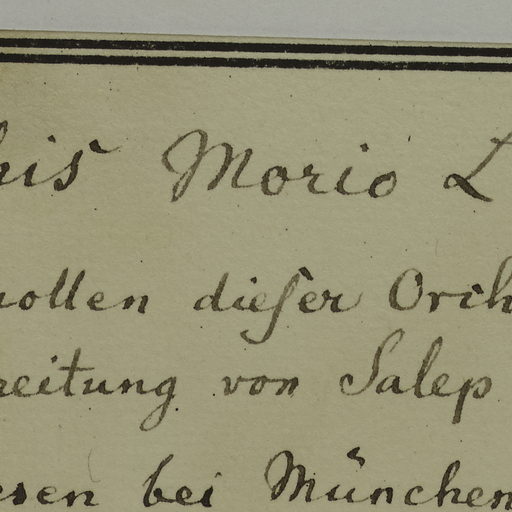 his Morio L
nollen dieſer Orch
reitung von Salep
esen bei München